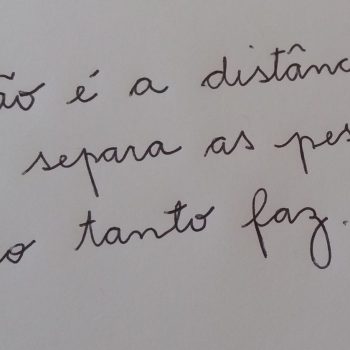 ão é a distânc
separa as pes
o tanto faz.